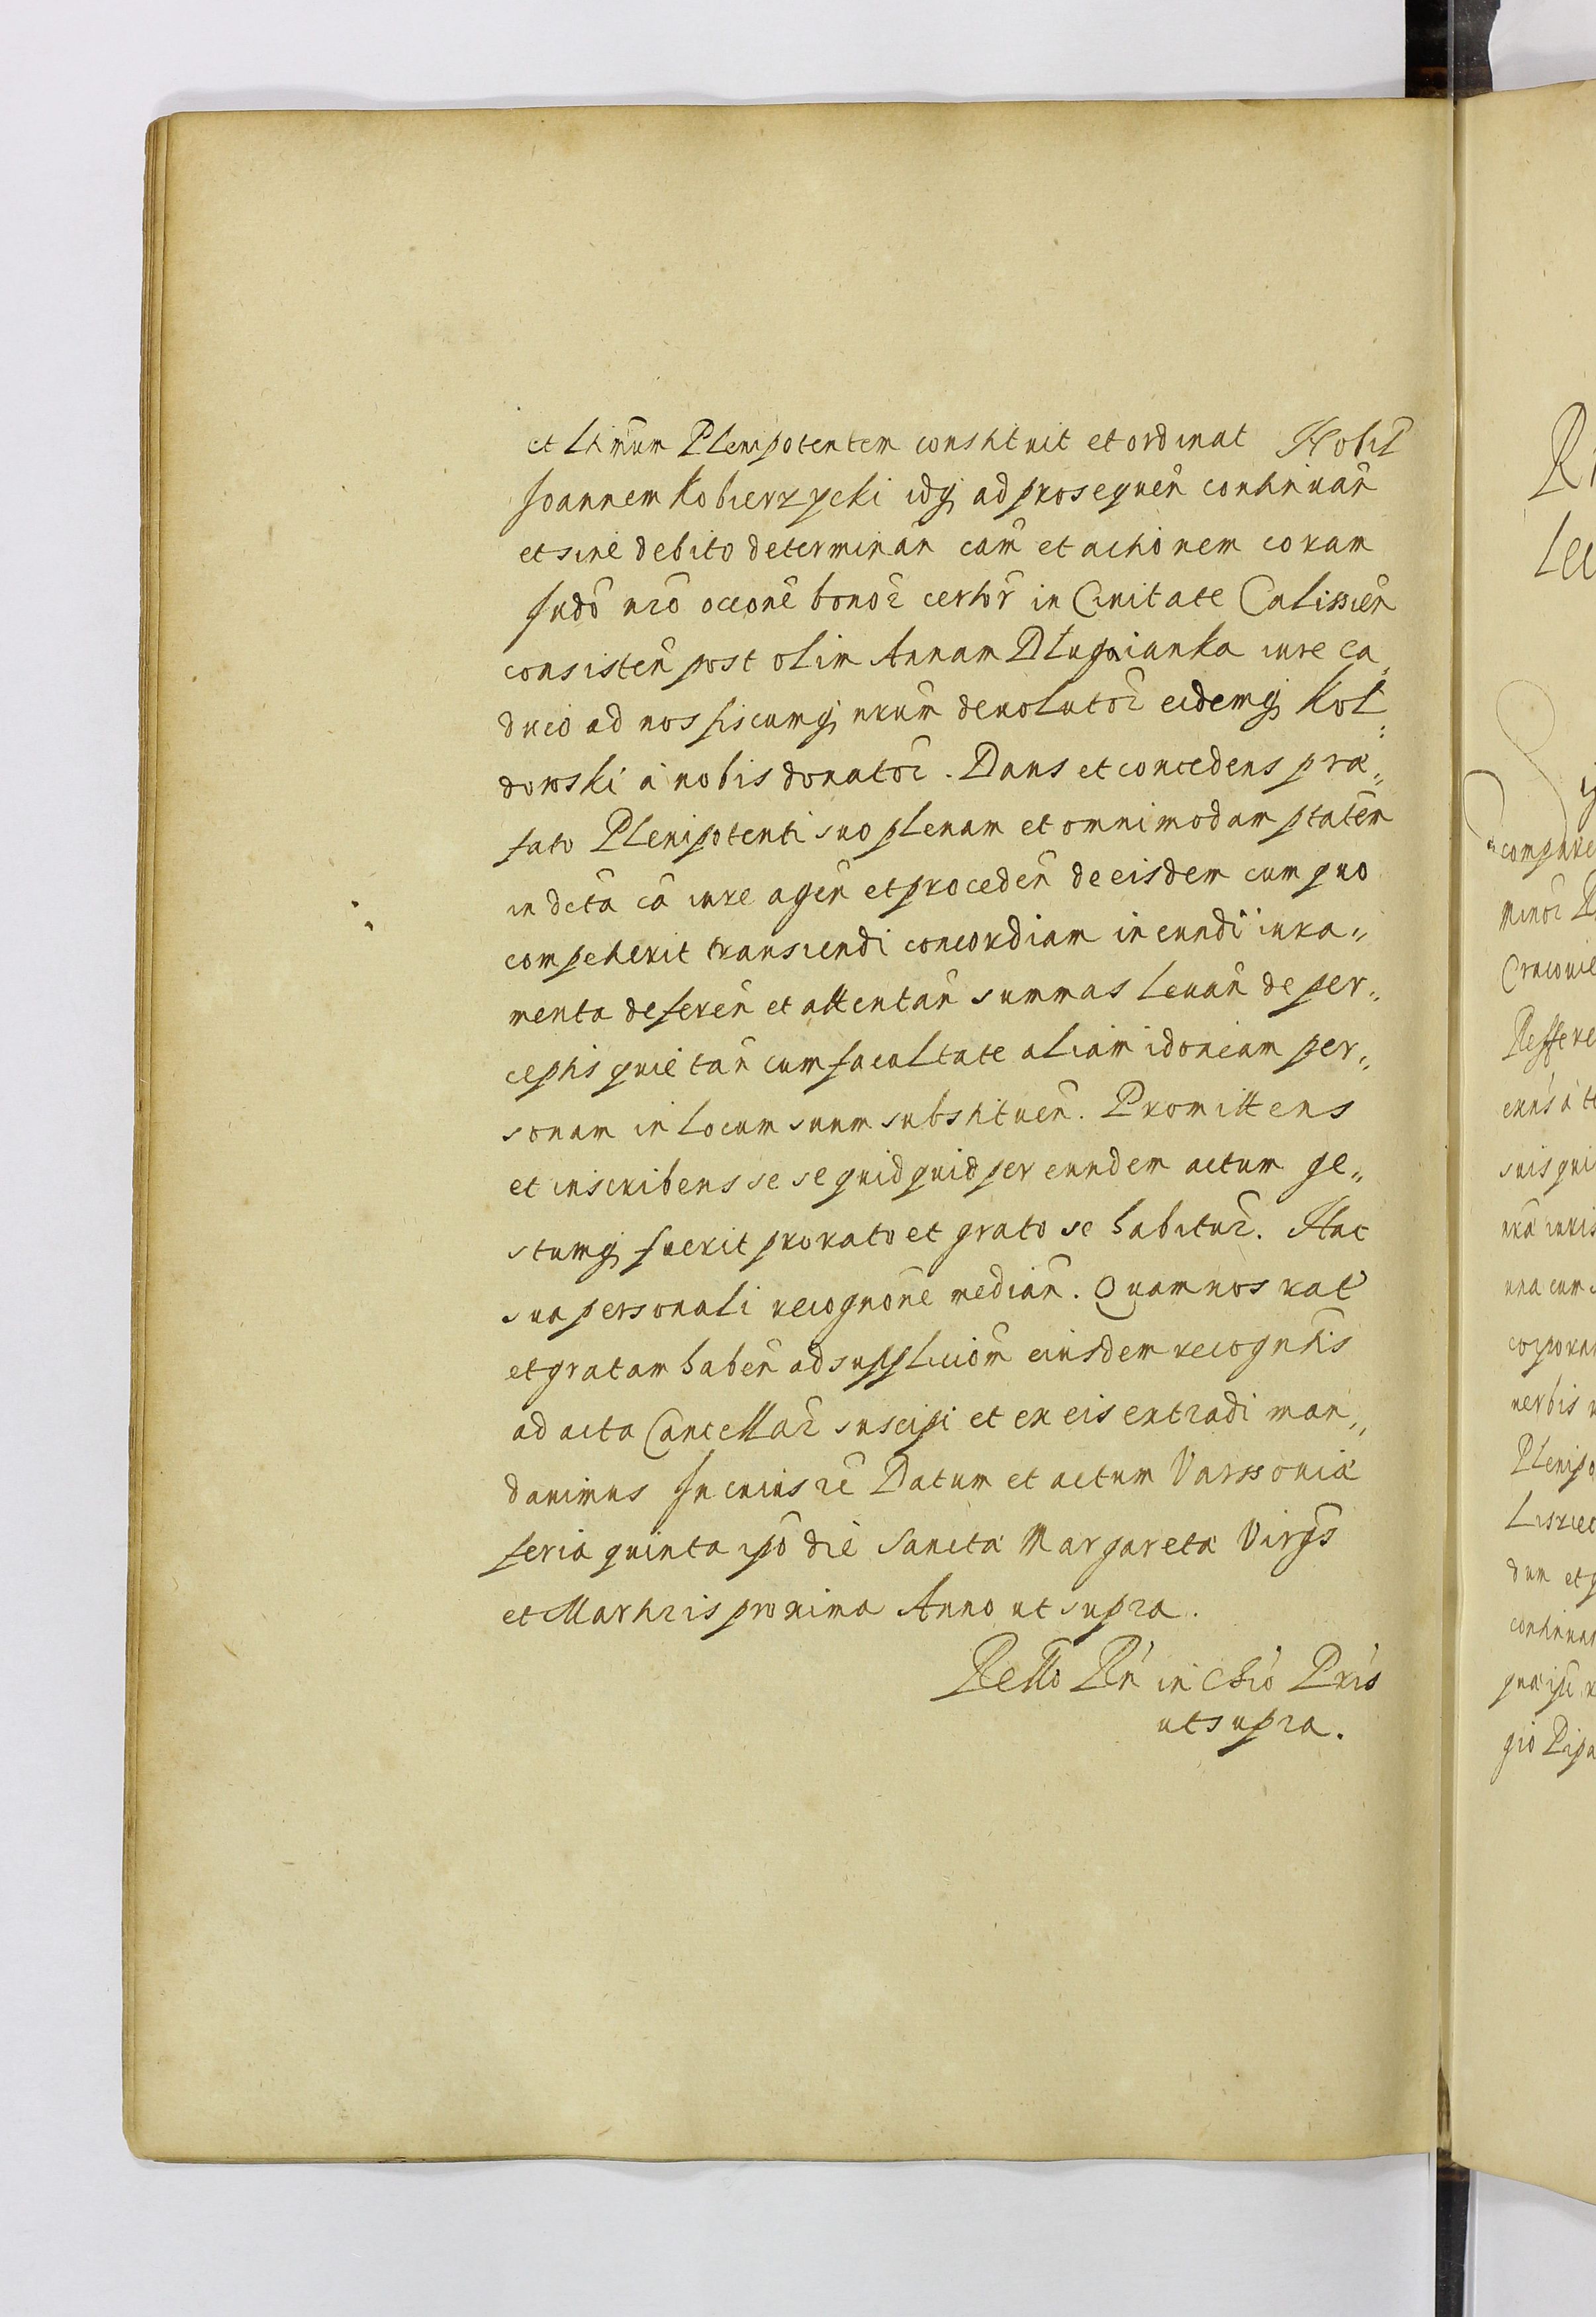 et ltimum Plenipotentem constituit et ordinat Nobil
Joannem Kobierzycki idq; ad prosequeñ continuañ
et sine debito determinañ cam̃ et actionem coram
Judõ nr̃o occone bonoꝝ certoꝝ in Ciuitate Calissieñ
consisteñ post olim Annam Dlugaianka iure ca„
duco ad nos fiscumq; nrum deuolutoꝝ eidemq; Kol„
dowski à nobis donatoꝝ. Dans et concedens præ„
fato Plenipotenti suo plenam et omnimodam ptatem
in dcta cã iure ageñ et procedeñ de eisdem cum quo
competierit transiendi concordiam ineundi iura„
menta defereñ et attentañ summas leuañ de per„
ceptis quietañ cum facultate aliam idoneam per„
sonam in locum suum substitueñ. Promittens
et inscribens sese quidquid per eundem actum ge„
stumq; fuerit pro rato et grato se habituꝝ. Hac
sua personali recognõne mediañ. Quam nos rat
et gratam habeñ ad supplicciom̃ eiusdem recogntis
ad acta Cancellaꝝ suscipi et ex eis extradi man„
dauimus In cuius rẽ Datum et actum Varssouiæ
feria quinta ipõ die Sanctæ Margaretæ Virgs̃
et Martiris proxima Anno ut supra.
Rello Rñ in Chiõ Pris
ut supra.